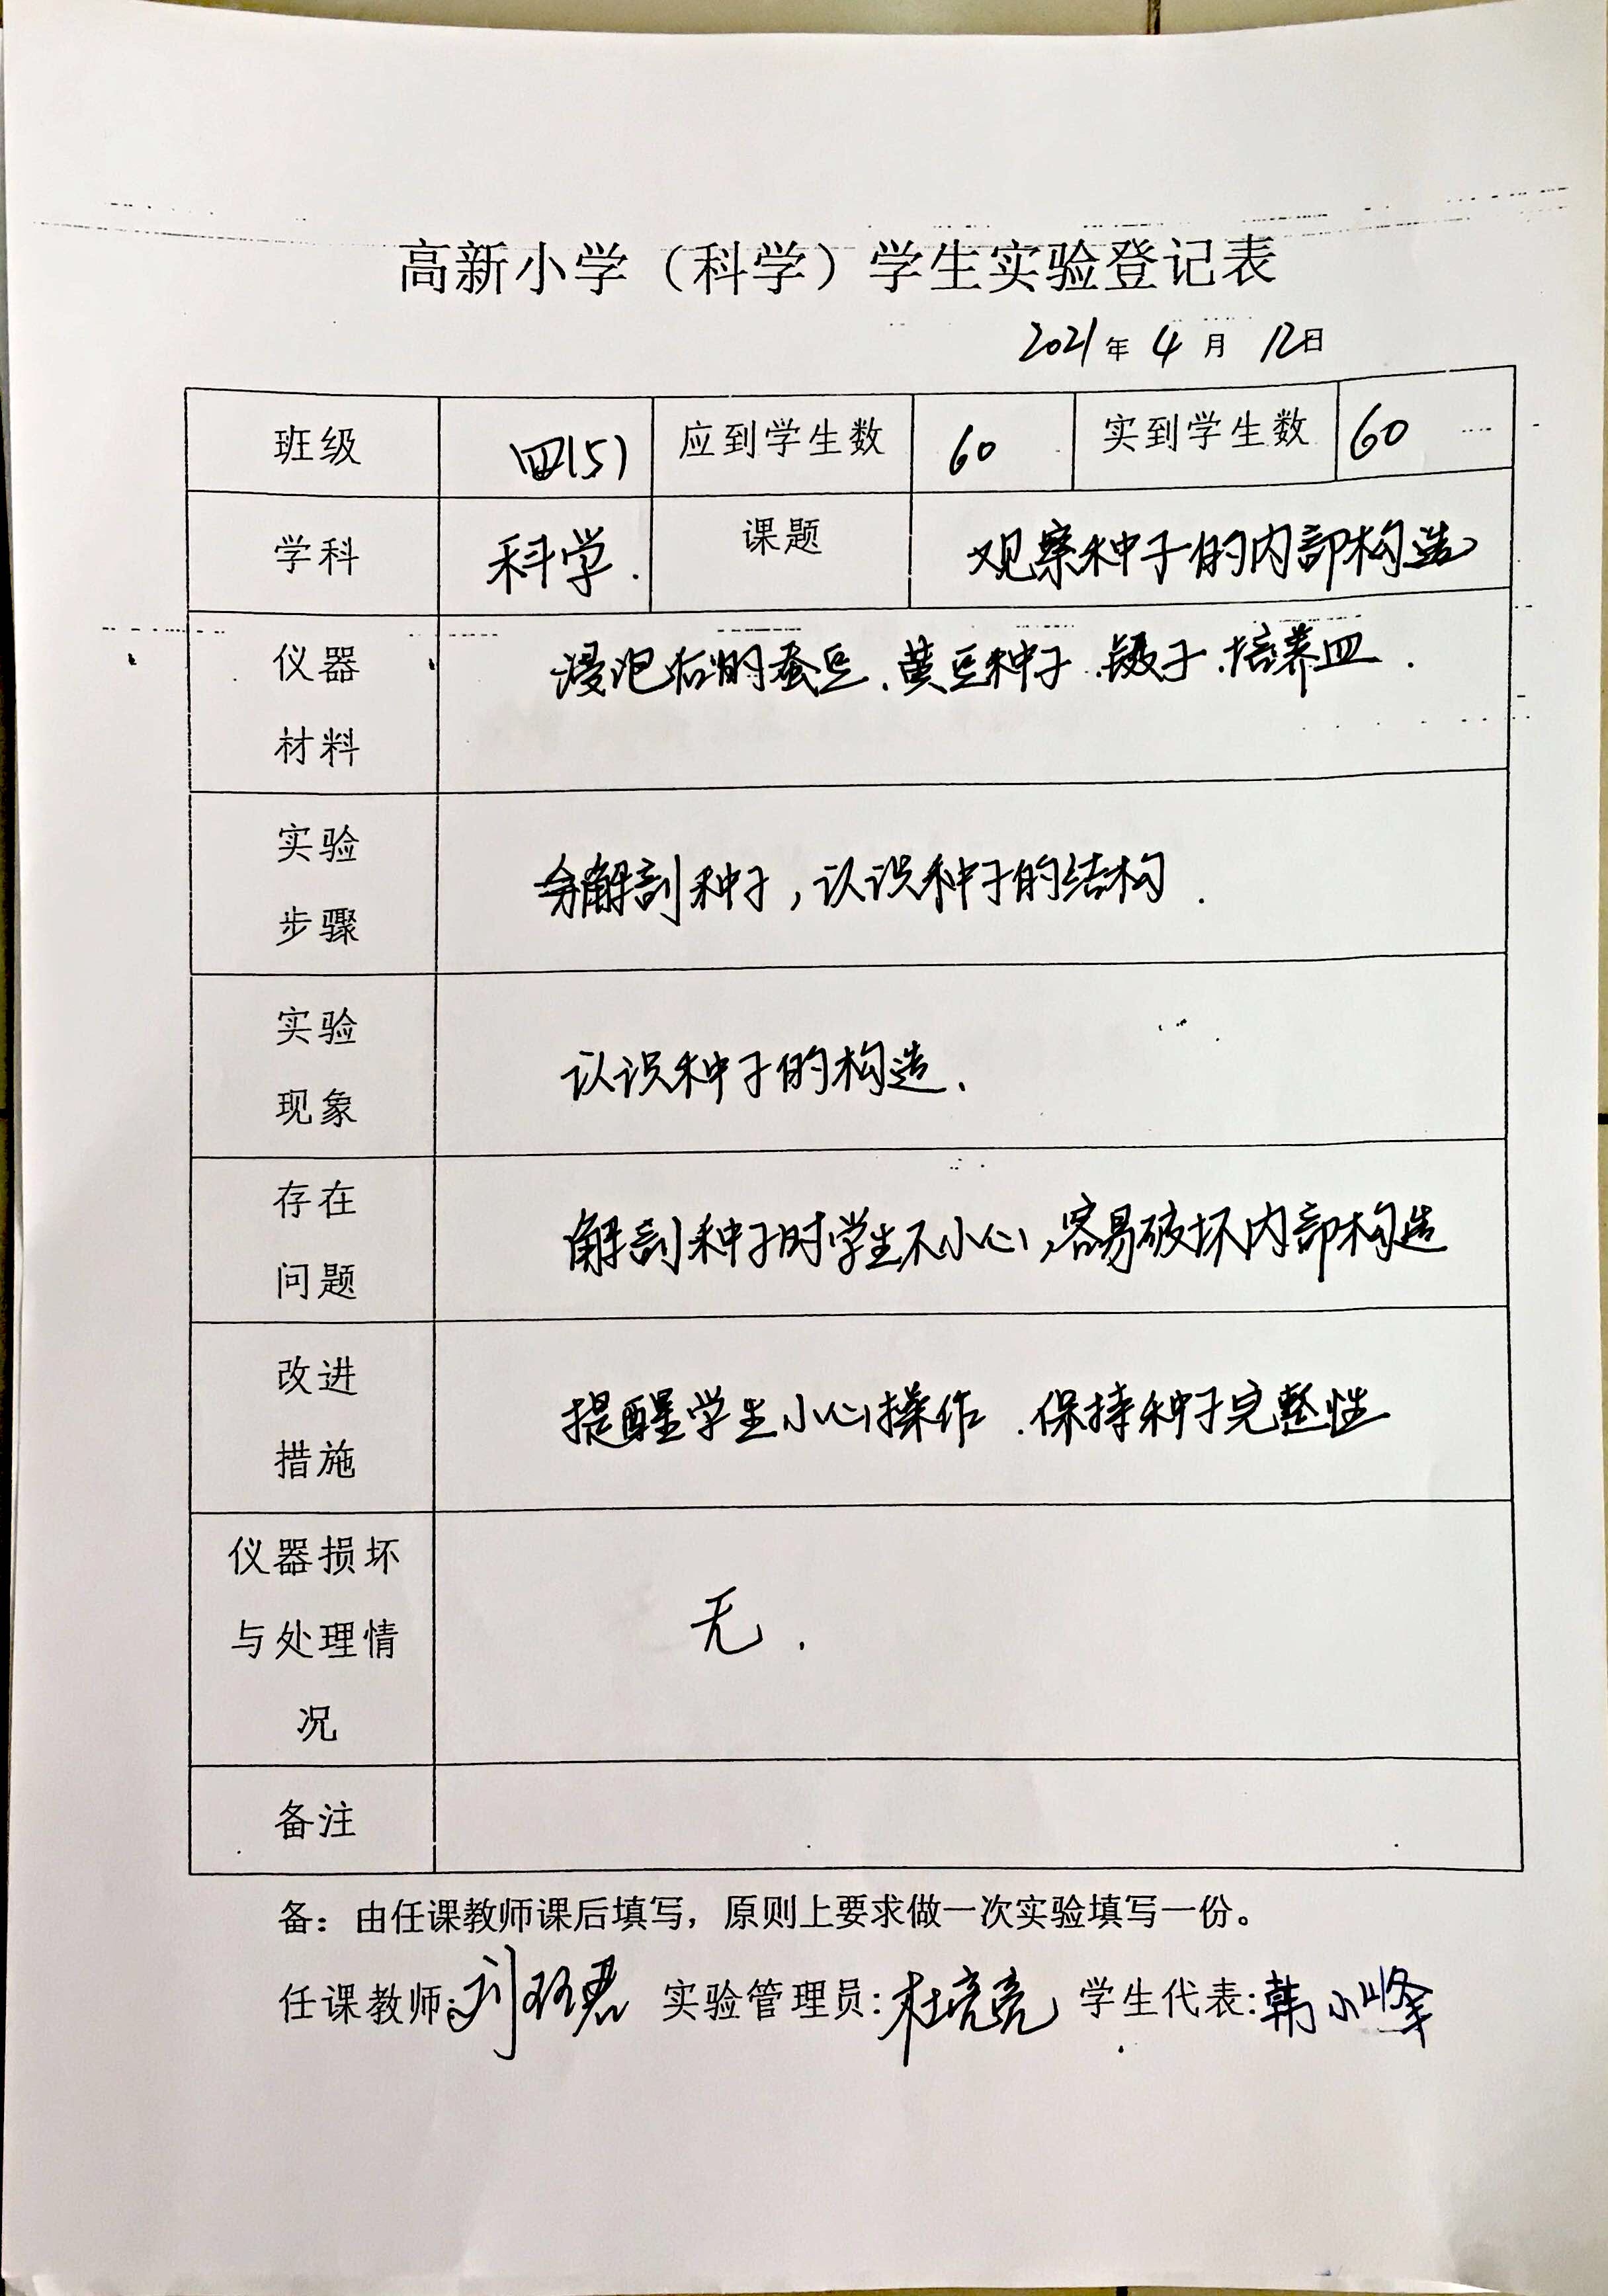 高新小学（科学）学生实验登记表
2021年 4 月 12日
班级 四(5) 应到学生数 60 实到学生数 60
学科 科学. 课题 观察种子的内部构造
仪器 浸泡后的蚕豆、黄豆种子、镊子、培养皿.
材料
实验
解剖种子，认识种子的结构.
步骤
实验
认识种子的构造、
现象
存在
解剖种子时学生不小心，容易破坏内部构造
问题
改进
提醒学生小心操作、保持种子完整性
措施
仪器损坏
与处理情 无.
况
备注
备：由任课教师课后填写，原则上要求做一次实验填写一份。
任课教师:刘 君 实验管理员:杜亮亮 学生代表:韩小峰